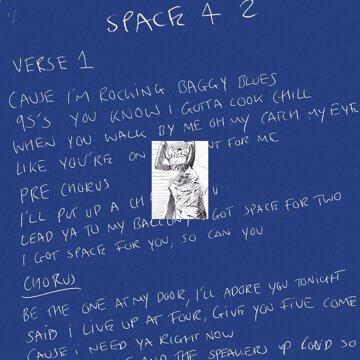 SPACE 4 2
VERSE 1
CAUSE I'M ROCKING BAGGY BLUES
95'S YOU KNOW I GOTTA LOOK CHILL
WHEN YOU WALK BY ME OH MY CATCH MY EYE
LIKE YOU'RE ON NT FOR ME
PRE CHORUS
I'LL PUT UP A CH
LEAD YA TO MY BALCONY GOT SPACE FOR TWO
I GOT SPACE FOR YOU, SO CAN YOU
CHORUS
BE THE ONE AT MY DOOR, I'LL ADORE YOU TONIGHT
SAID I LIVE UP AT FOUR, GIVE YOU FIVE COME
CAUSE I NEED YA RIGHT NOW
AND THE SPEAKERS UP LOUD SO